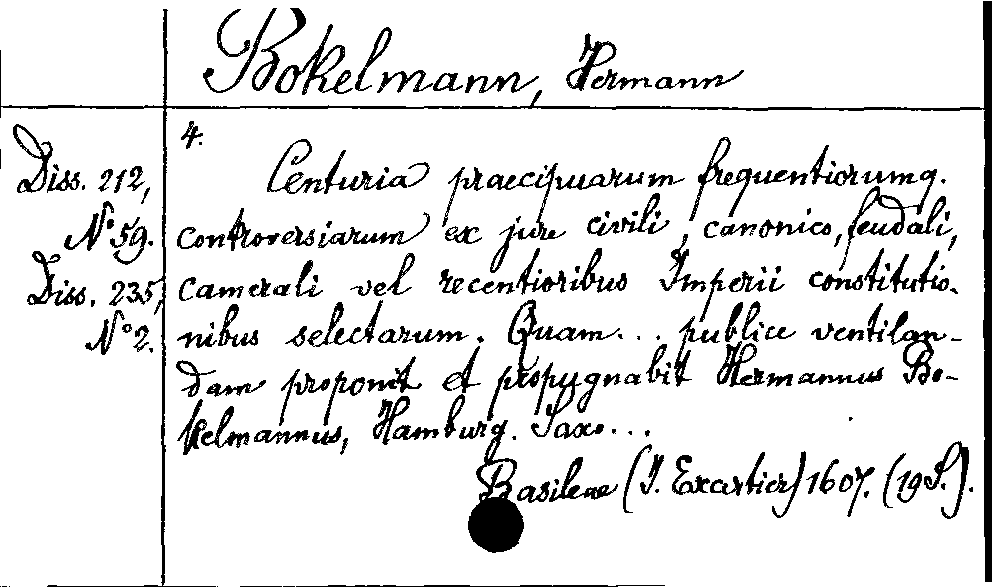 Bokelmann, Hermann
4.
Diss. 212,
N° 59.
Diss. 235,
N° 2.
Centuria praecipuarum frequentiorumq.
controversiarum ex jure civili, canonico, feudali,
camerali vel recentioribus Imperii constitutio-
nibus selectarum. Quam... publice ventilan-
dam proponit et propugnabit Hermannus Bo-
kelmannus, Hamburg. Saxo...
Basileae (J. Excertier) 1607. (19 S.).